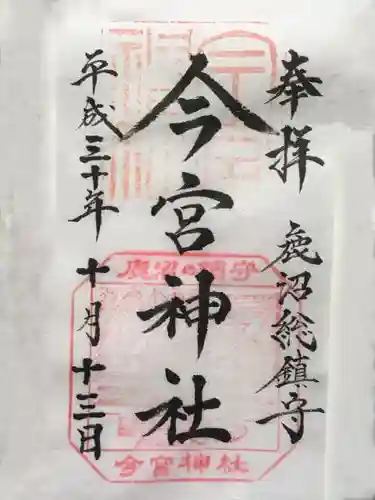 奉拝
鹿沼総鎮守
今宮神社
平成三十年
十月十三日
鹿沼の鎮守
今宮神社